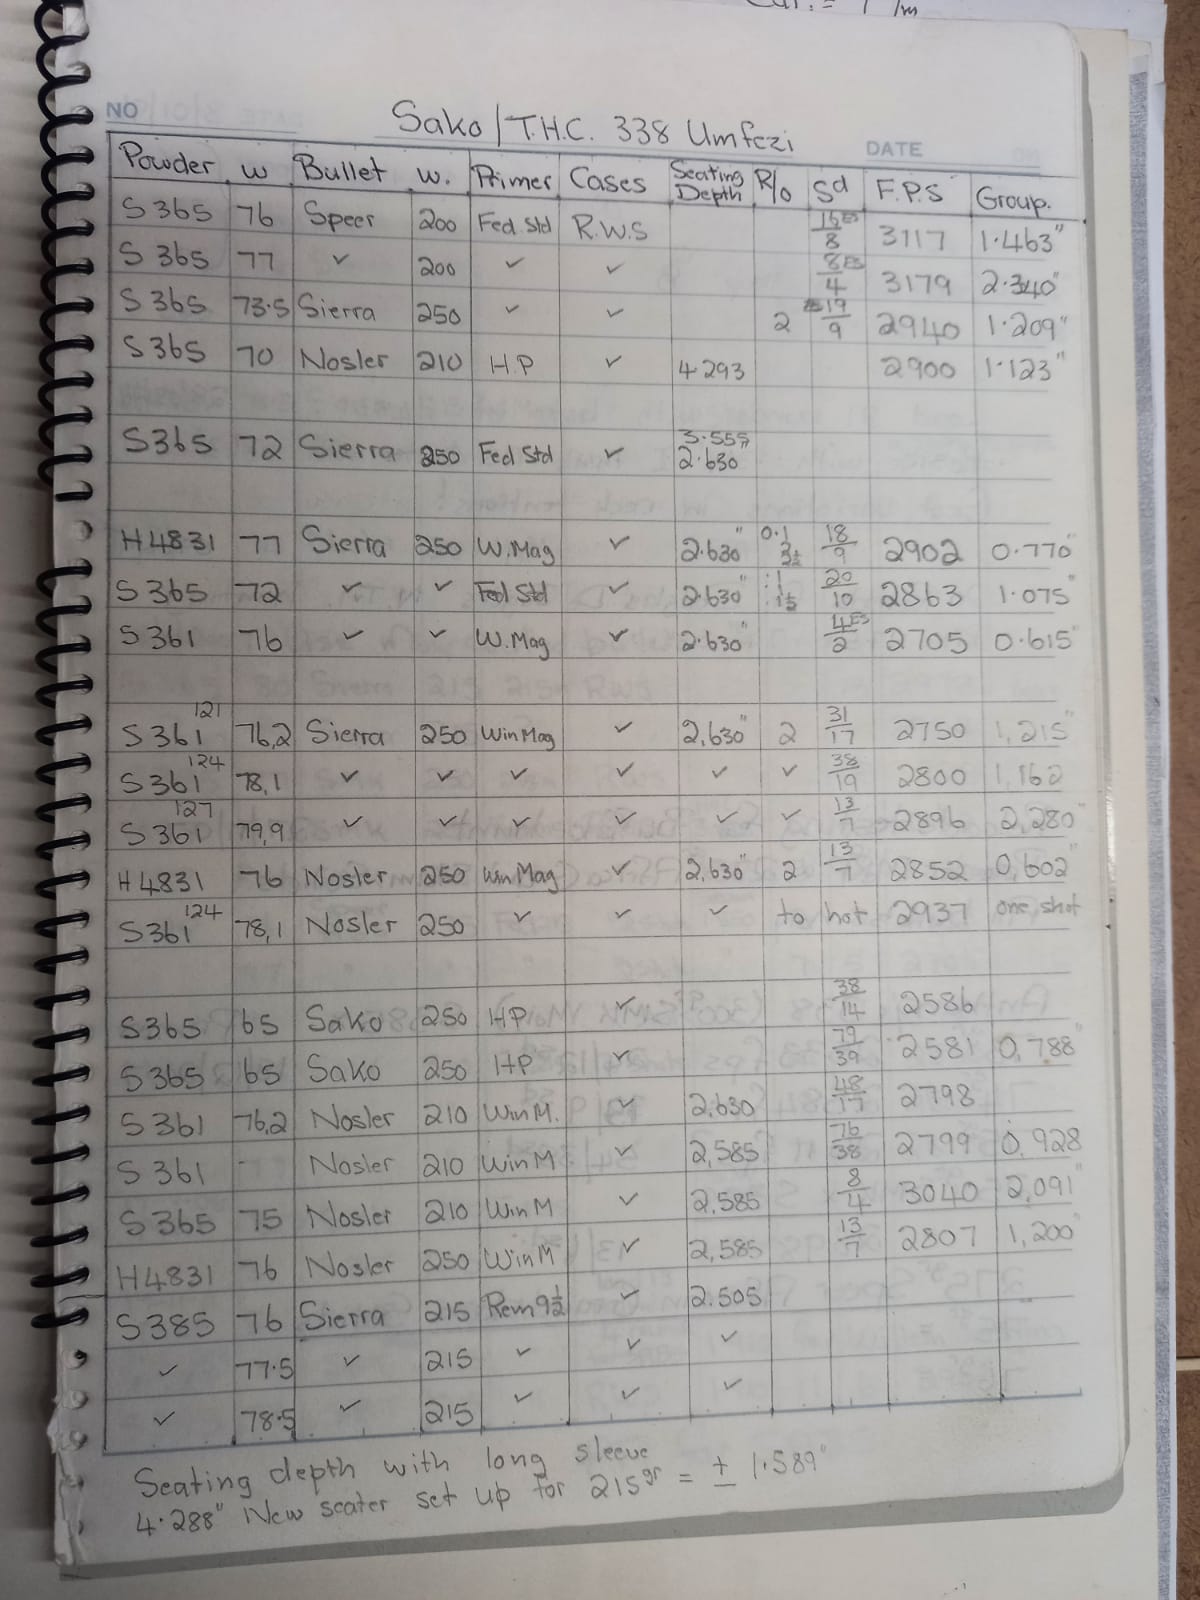 NO Sako/T.H.C. 338 Umfezi DATE
Powder w Bullet w. Primer Cases Seating Depth R/o Sd F.P.S Group.
S365 76 Speer 200 Fed Std R.W.S 15ES/8 3117 1.463"
S365 77 ✓ 200 ✓ ✓ 8ES/4 3179 2.340"
S365 73.5 Sierra 250 ✓ ✓ 2 19/9 2940 1.209"
S365 70 Nosler 210 H.P ✓ 4.293 2900 1.123"
S365 72 Sierra 250 Fed Std ✓ 3.555" 2.630
H4831 77 Sierra 250 W.Mag ✓ 2.630" 0.1 18/9 2902 0.770"
S365 72 ✓ ✓ Fed Std ✓ 2.630" 20/10 2863 1.075"
S361 76 ✓ ✓ W.Mag ✓ 2.630" 4ES/2 2705 0.615"
S361 121 76,2 Sierra 250 Win Mag ✓ 2,630" 2 31/17 2750 1,215"
S361 124 78,1 ✓ ✓ ✓ ✓ ✓ ✓ 38/19 2800 1,162
S361 127 79,9 ✓ ✓ ✓ ✓ ✓ ✓ 13/7 2896 2,280"
H4831 76 Nosler 250 Win Mag ✓ 2,630" 2 13/7 2852 0,602"
S361 124 78,1 Nosler 250 ✓ ✓ ✓ to hot 2937 one shot
S365 65 Sako 250 HP ✓ 38/14 2586
S365 65 Sako 250 HP ✓ 79/39 2581 0,788"
S361 76,2 Nosler 210 Win M. ✓ 2,630 48/17 2798
S361 - Nosler 210 Win M ✓ 2,585 76/38 2799 0,928
S365 75 Nosler 210 Win M ✓ 2,585 8/4 3040 2,091"
H4831 76 Nosler 250 Win M ✓ 2,585 13/7 2807 1,200"
S385 76 Sierra 215 Rem 9½ ✓ 2.505
✓ 77.5 ✓ 215 ✓ ✓ ✓
✓ 78.5 ✓ 215 ✓ ✓ ✓
Seating depth with long sleeve
4.288" New seater set up for 215gr = ± 1.589"